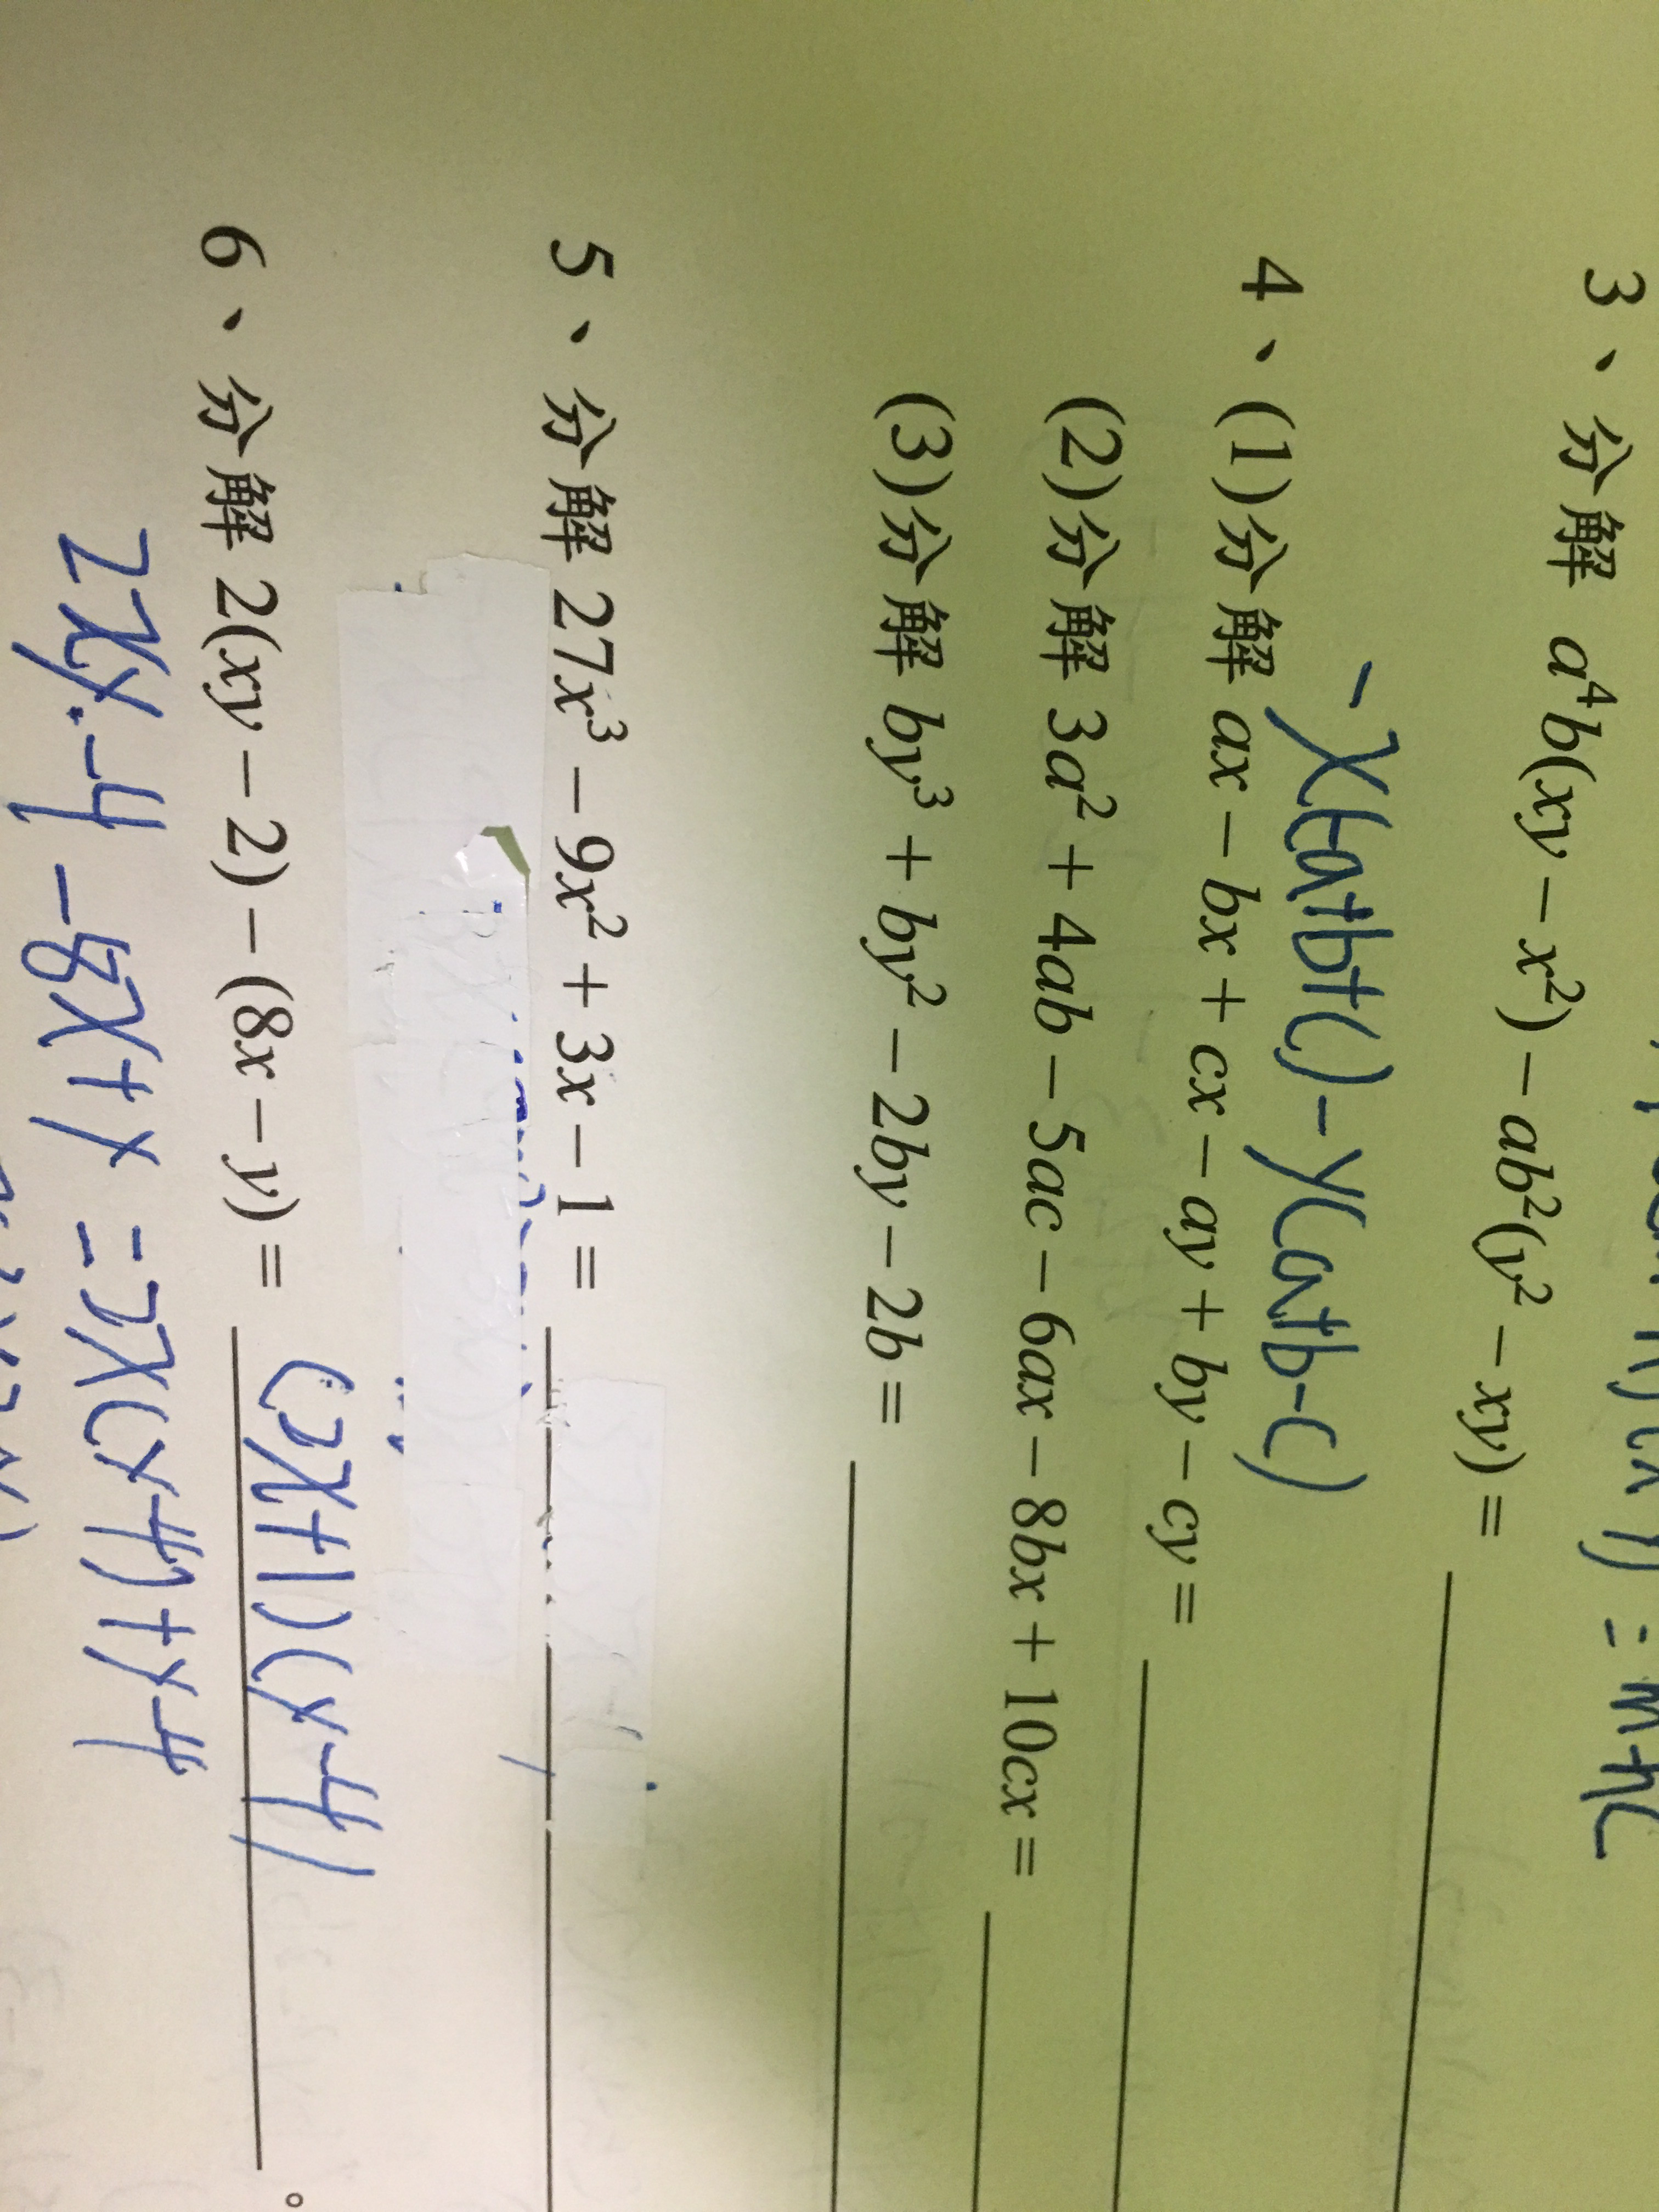 3、分解 a⁴b(xy − x²) − ab²(y² − xy) =
-x(-a+b+c)-y(a+b-c)
4、(1)分解 ax − bx + cx − ay + by − cy =
(2)分解 3a² + 4ab − 5ac − 6ax − 8bx + 10cx =
(3)分解 by³ + by² − 2by − 2b =
5、分解 27x³ − 9x² + 3x − 1 =
6、分解 2(xy − 2) − (8x − y) = (2x+1)(y-4) 。
2xy-4-8x+y =2x(y-4)+y-4